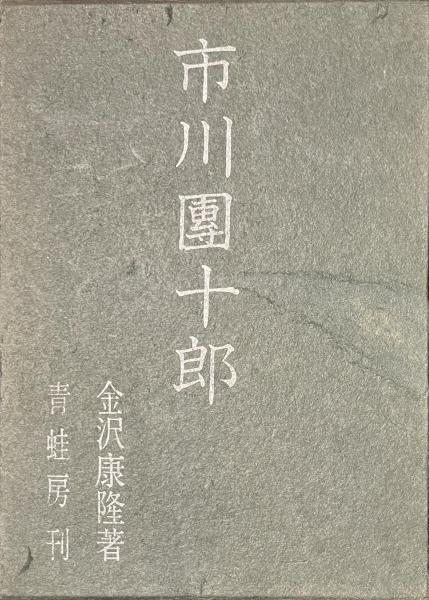 市川團十郎
金沢康隆著
青蛙房刊